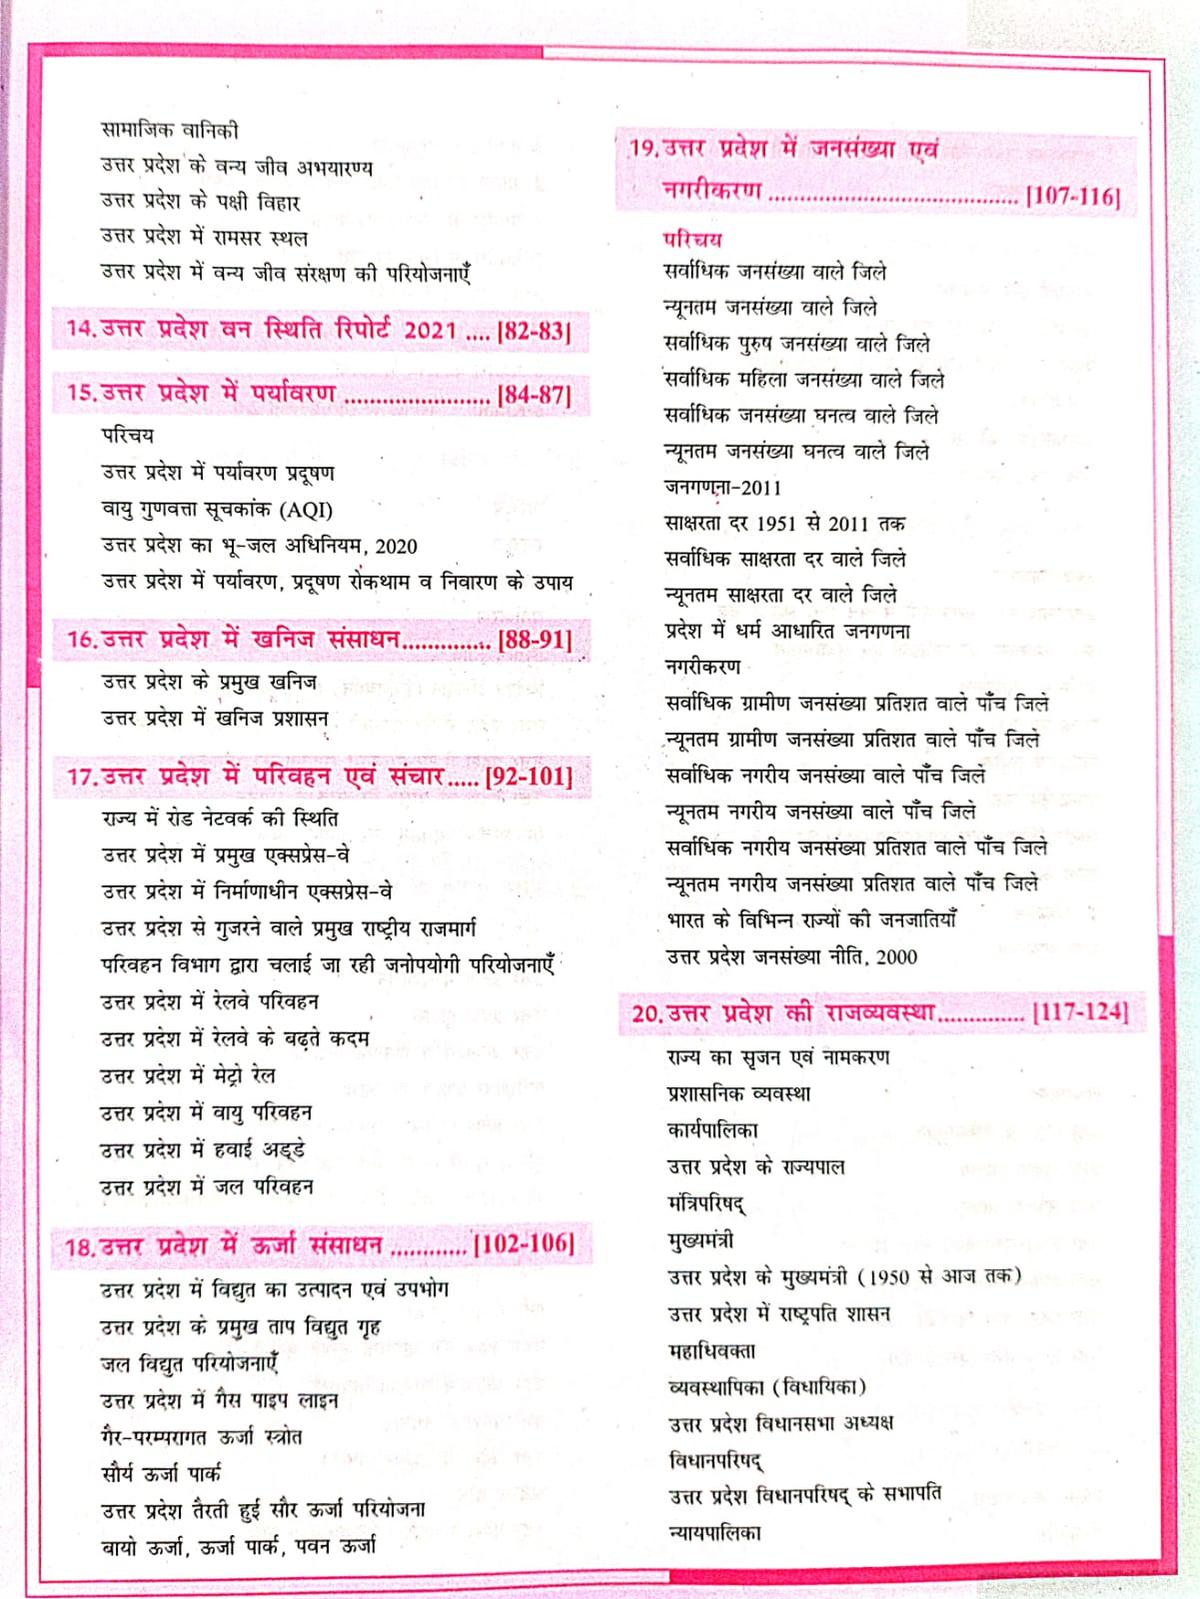 सामाजिक वानिकी
उत्तर प्रदेश के वन्य जीव अभयारण्य
उत्तर प्रदेश के पक्षी विहार
उत्तर प्रदेश में रामसर स्थल
उत्तर प्रदेश में वन्य जीव संरक्षण की परियोजनाएँ
14. उत्तर प्रदेश वन स्थिति रिपोर्ट 2021 .... [82-83]
15. उत्तर प्रदेश में पर्यावरण ........................ [84-87]
परिचय
उत्तर प्रदेश में पर्यावरण प्रदूषण
वायु गुणवत्ता सूचकांक (AQI)
उत्तर प्रदेश का भू-जल अधिनियम, 2020
उत्तर प्रदेश में पर्यावरण, प्रदूषण रोकथाम व निवारण के उपाय
16. उत्तर प्रदेश में खनिज संसाधन.............. [88-91]
उत्तर प्रदेश के प्रमुख खनिज
उत्तर प्रदेश में खनिज प्रशासन
17. उत्तर प्रदेश में परिवहन एवं संचार..... [92-101]
राज्य में रोड नेटवर्क की स्थिति
उत्तर प्रदेश में प्रमुख एक्सप्रेस-वे
उत्तर प्रदेश में निर्माणाधीन एक्सप्रेस-वे
उत्तर प्रदेश से गुजरने वाले प्रमुख राष्ट्रीय राजमार्ग
परिवहन विभाग द्वारा चलाई जा रही जनोपयोगी परियोजनाएँ
उत्तर प्रदेश में रेलवे परिवहन
उत्तर प्रदेश में रेलवे के बढ़ते कदम
उत्तर प्रदेश में मेट्रो रेल
उत्तर प्रदेश में वायु परिवहन
उत्तर प्रदेश में हवाई अड्डे
उत्तर प्रदेश में जल परिवहन
18. उत्तर प्रदेश में ऊर्जा संसाधन ............ [102-106]
उत्तर प्रदेश में विद्युत का उत्पादन एवं उपभोग
उत्तर प्रदेश के प्रमुख ताप विद्युत गृह
जल विद्युत परियोजनाएँ
उत्तर प्रदेश में गैस पाइप लाइन
गैर-परम्परागत ऊर्जा स्त्रोत
सौर्य ऊर्जा पार्क
उत्तर प्रदेश तैरती हुई सौर ऊर्जा परियोजना
बायो ऊर्जा, ऊर्जा पार्क, पवन ऊर्जा
19. उत्तर प्रदेश में जनसंख्या एवं
नगरीकरण ......................................... [107-116]
परिचय
सर्वाधिक जनसंख्या वाले जिले
न्यूनतम जनसंख्या वाले जिले
सर्वाधिक पुरुष जनसंख्या वाले जिले
सर्वाधिक महिला जनसंख्या वाले जिले
सर्वाधिक जनसंख्या घनत्व वाले जिले
न्यूनतम जनसंख्या घनत्व वाले जिले
जनगणना-2011
साक्षरता दर 1951 से 2011 तक
सर्वाधिक साक्षरता दर वाले जिले
न्यूनतम साक्षरता दर वाले जिले
प्रदेश में धर्म आधारित जनगणना
नगरीकरण
सर्वाधिक ग्रामीण जनसंख्या प्रतिशत वाले पाँच जिले
न्यूनतम ग्रामीण जनसंख्या प्रतिशत वाले पाँच जिले
सर्वाधिक नगरीय जनसंख्या वाले पाँच जिले
न्यूनतम नगरीय जनसंख्या वाले पाँच जिले
सर्वाधिक नगरीय जनसंख्या प्रतिशत वाले पाँच जिले
न्यूनतम नगरीय जनसंख्या प्रतिशत वाले पाँच जिले
भारत के विभिन्न राज्यों की जनजातियाँ
उत्तर प्रदेश जनसंख्या नीति, 2000
20. उत्तर प्रदेश की राजव्यवस्था.............. [117-124]
राज्य का सृजन एवं नामकरण
प्रशासनिक व्यवस्था
कार्यपालिका
उत्तर प्रदेश के राज्यपाल
मंत्रिपरिषद्
मुख्यमंत्री
उत्तर प्रदेश के मुख्यमंत्री (1950 से आज तक)
उत्तर प्रदेश में राष्ट्रपति शासन
महाधिवक्ता
व्यवस्थापिका (विधायिका)
उत्तर प्रदेश विधानसभा अध्यक्ष
विधानपरिषद्
उत्तर प्रदेश विधानपरिषद् के सभापति
न्यायपालिका